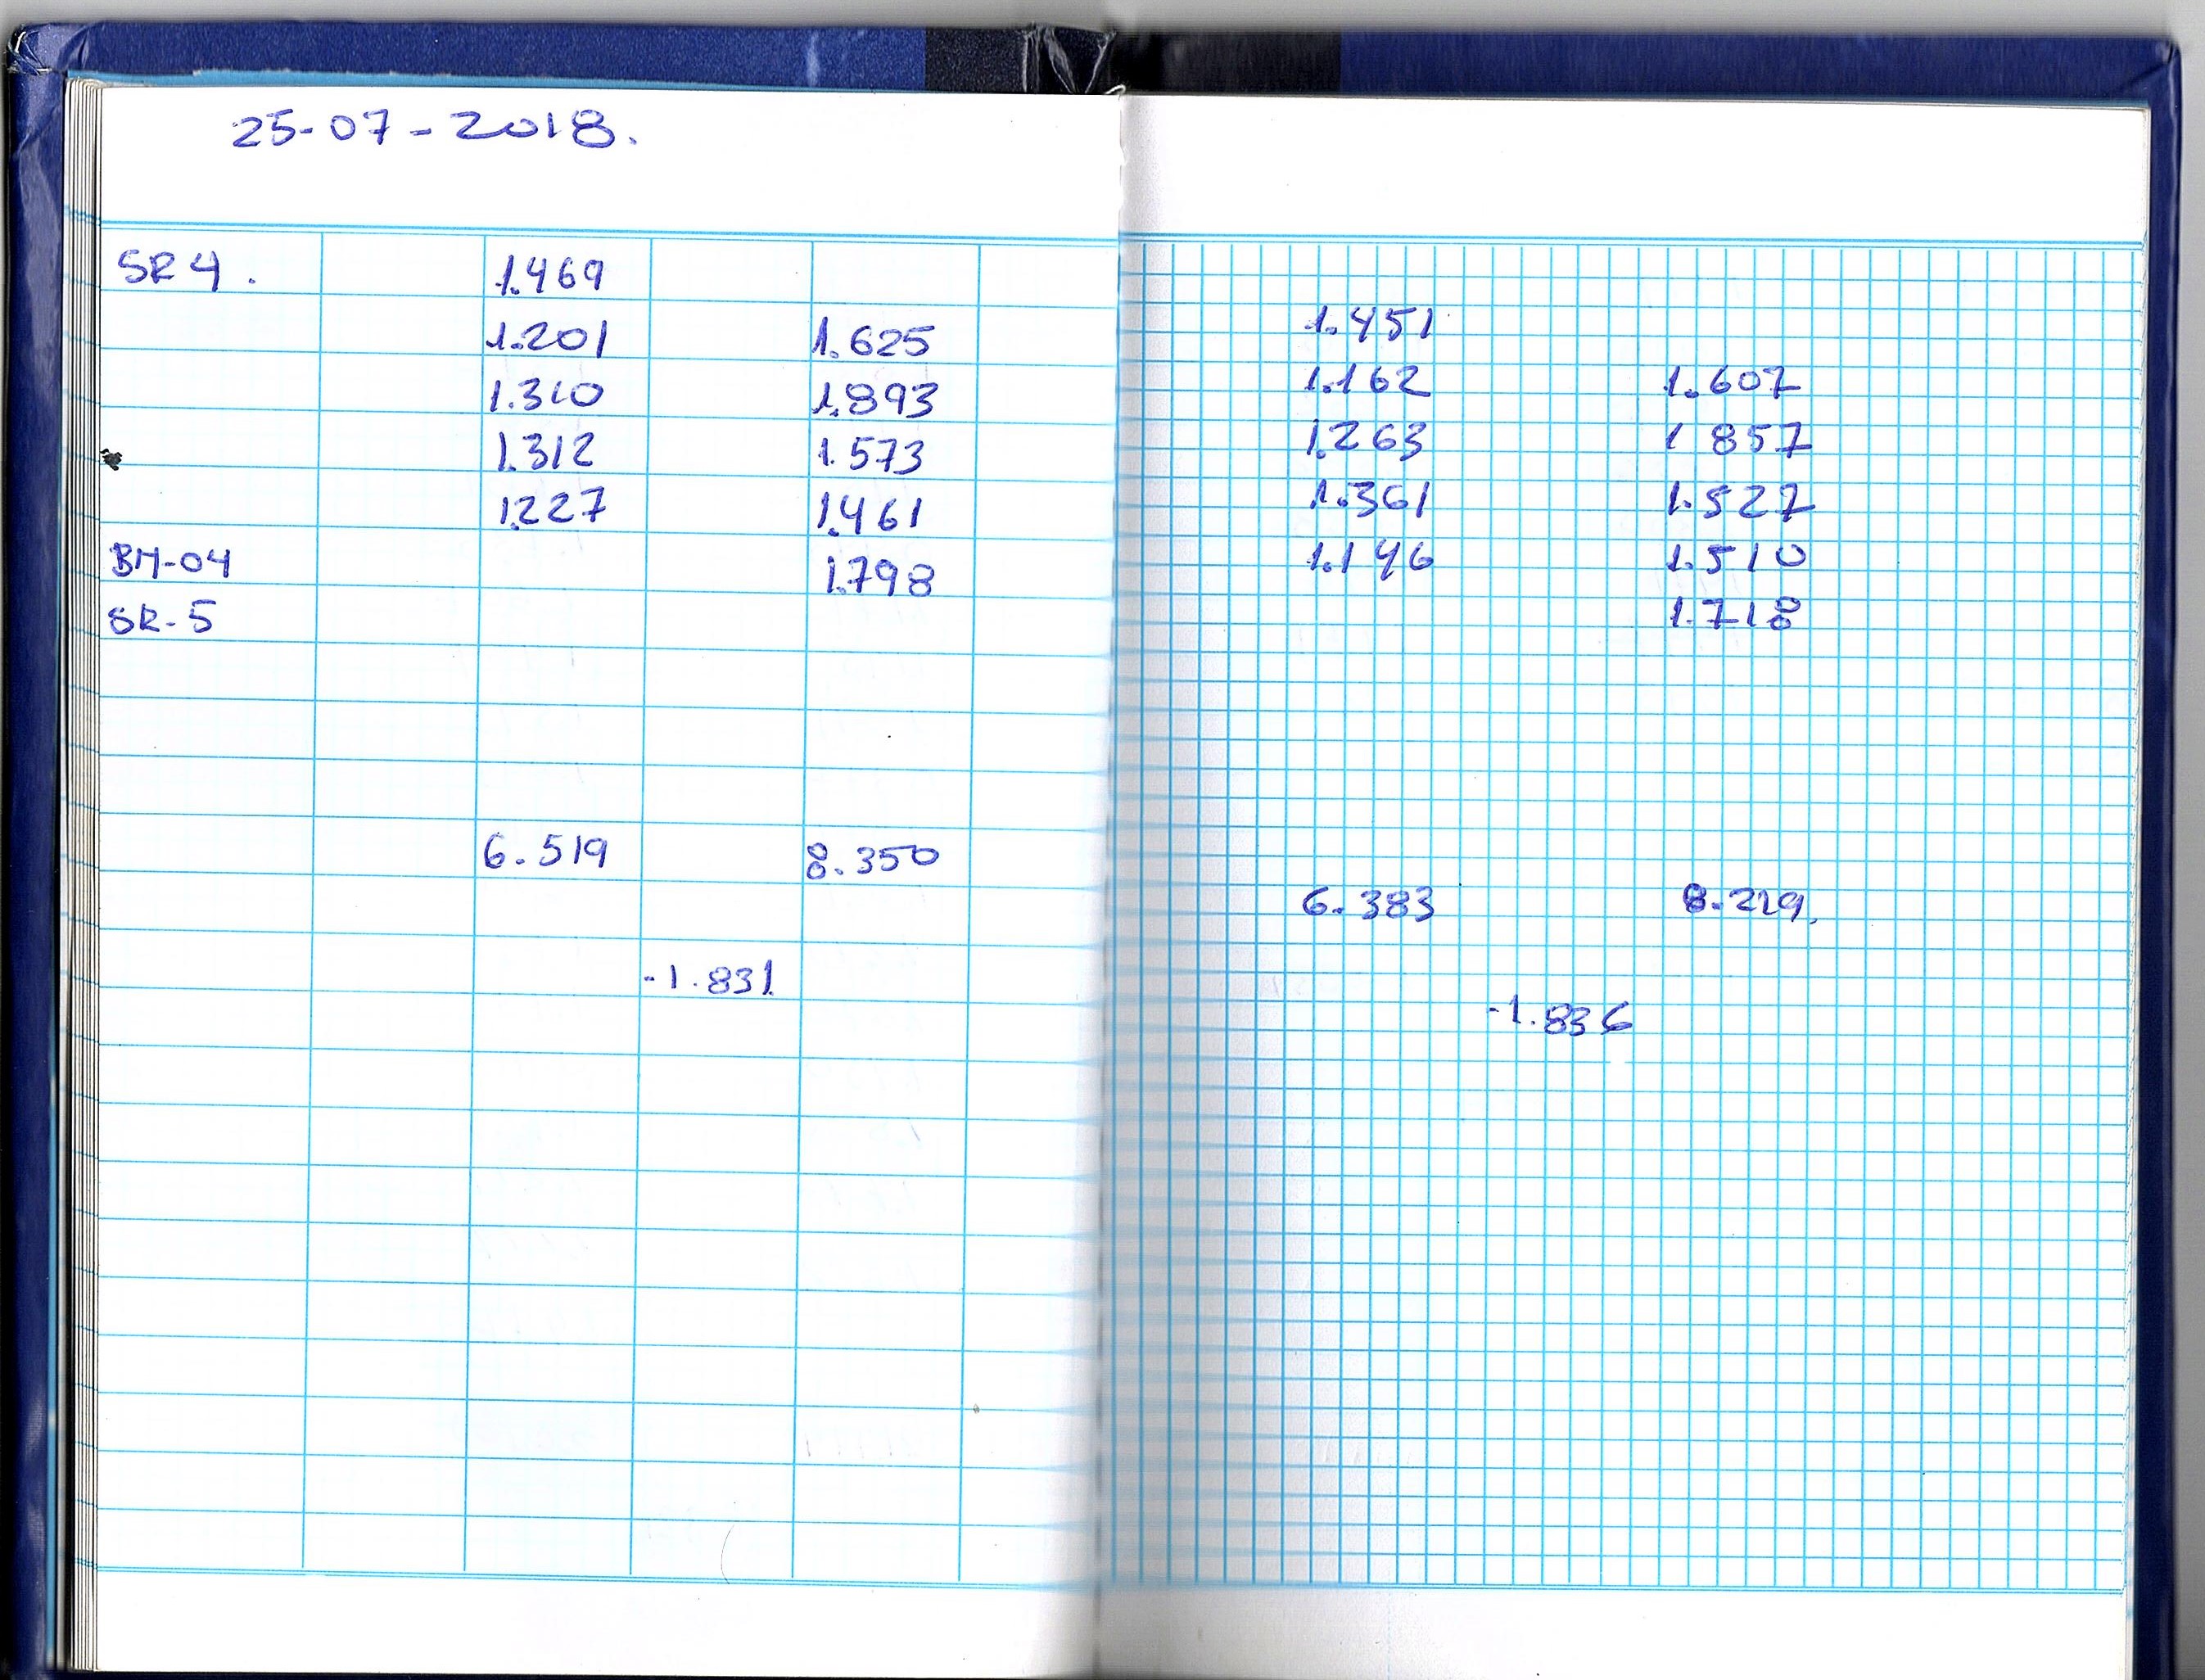 25-07-2018.
SR4. 1.469
1.201 1.625
1.310 1.893
1.312 1.573
1.227 1.461
BM-04 1.798
SR-5
6.519 8.350
-1.831
1.451
1.162 1.607
1.263 1 857
1.361 1.527
1.146 1.510
1.718
6.383 8.219.
-1.836